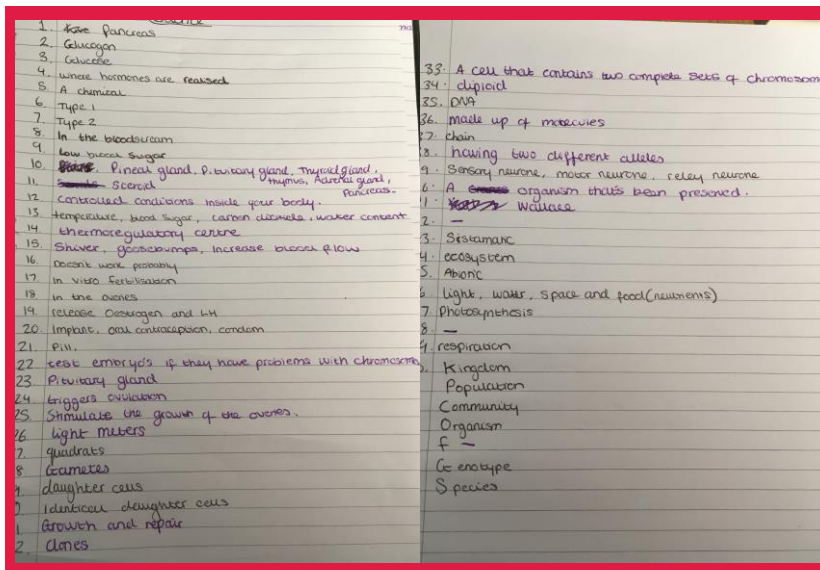 1. Pancreas
2. Glucogon
3. Glucose
4. where hormones are realised
5. A chemical
6. Type 1
7. Type 2
8. In the bloodscream
9. Low blood sugar
10. Pineal gland, Pituitary gland, Thyroid gland,
thymus, Adrenal gland,
Pancreas.
11. Steroid
12. controlled conditions inside your body.
13. temperature, blood sugar, carbon dioxide, water content
14. thermoregulatory centre
15. Shiver, goosebumps, increase blood flow
16. Doesn't work probably
17. In vitro fertilisation
18. in the ovaries
19. release Oestrogen and LH
20. Implant, oral contraception, condom
21. Pill.
22 test embryo's if they have problems with chromosome
23. Pituitary gland
24. triggers ovulation
25. Stimulate the growth of the ovaries.
26. light meters
7. quadrats
8 Gametes
daughter cells
Identical daughter cells
1 Growth and repair
2. clones
33. A cell that contains two complete sets of chromosom
34. diploid
35. DNA
36. made up of molecules
37. chain
8. having two different alleles
9. Sensory neurone, motor neurone, relay neurone
A organism that's been preserved.
1. Wallace
2. –
3. 
4. ecosystem
5. Abiotic
light, water, space and food
7 Photosynthesis
8. –
respiration
Kingdom
Population
Community
Organism
f –
Genotype
Species